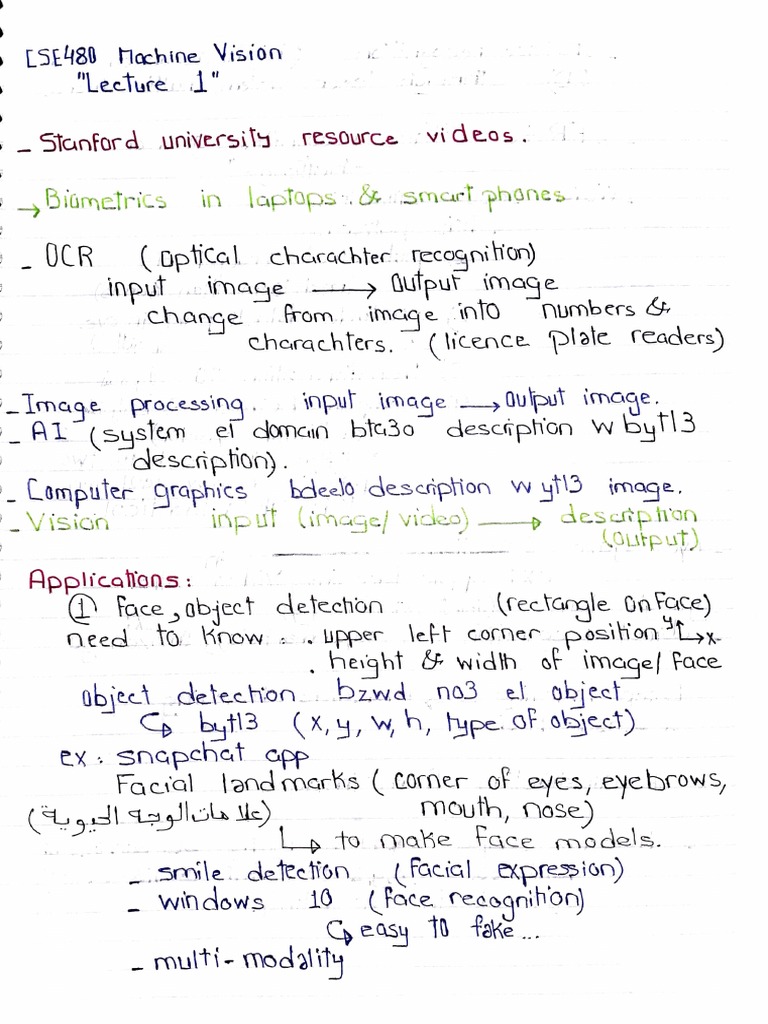 CSE480 Machine Vision
"Lecture 1"
- Stanford university resource videos.
→ Biometrics in laptops & smart phones
- OCR (Optical charachter recognition)
input image → Output image
change from image into numbers &
charachters. (licence plate readers)
- Image processing. input image → Output image.
- AI (system el domain bta3o description w bytl3
description).
- Computer graphics bdeelo description w ytl3 image.
- Vision input (image/video) → description
(output)
Applications:
① Face, object detection (rectangle on face)
need to know: . upper left corner position y x
. height & width of image/face
object detection bzwd no3 el object
↳ bytl3 (x, y, w, h, type of object)
ex: snapchat app
Facial landmarks (corner of eyes, eyebrows,
(علامات الوجه الحيوية) mouth, nose)
↳ to make face models.
- smile detection (facial expression)
- windows 10 (face recognition)
↳ easy to fake...
- multi-modality